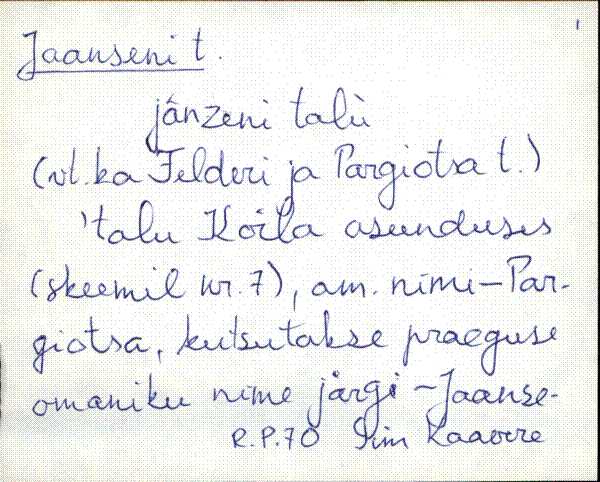 1
Jaanseni t.
jânzeni talù
(vt. ka Felderi ja Pargiotsa t.)
'talu Koila asunduses
(skeemil nr. 7), am. nimi – Par-
giotsa, kutsutakse praeguse
omaniku nime järgi ~ Jaanse-
R.P. 70 Siim Kaavere